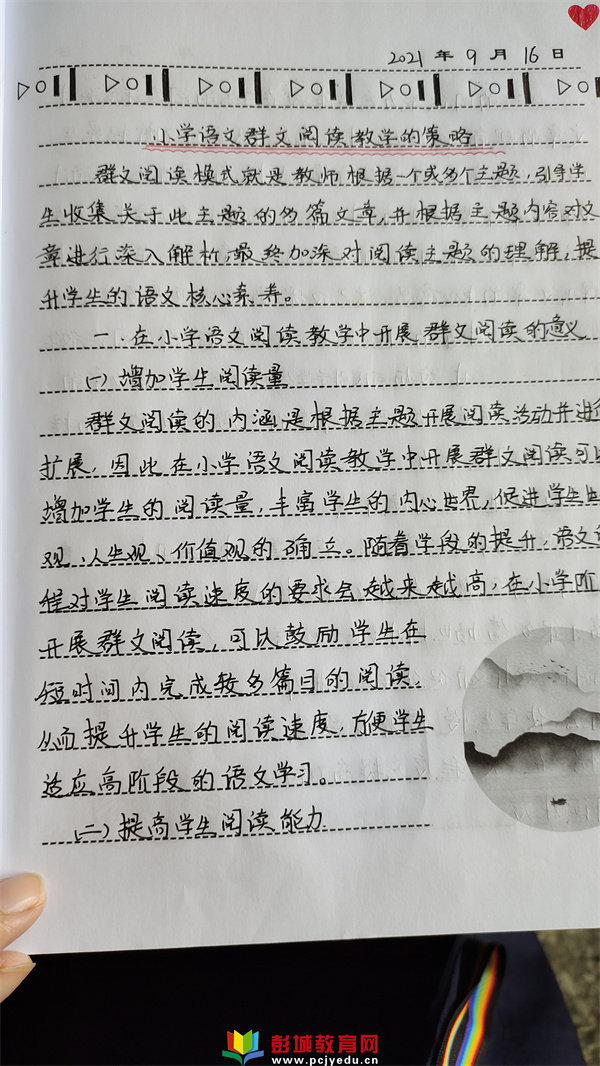 2021年9月16日
小学语文群文阅读教学的策略
群文阅读模式就是教师根据一个或多个主题,引导学
生收集关于此主题的多篇文章,并根据主题内容对文
章进行深入解析,最终加深对阅读主题的理解,提
升学生的语文核心素养。
一.在小学语文阅读教学中开展群文阅读的意义
(一)增加学生阅读量
群文阅读的内涵是根据主题开展阅读活动并进行
扩展,因此在小学语文阅读教学中开展群文阅读可以
增加学生的阅读量,丰富学生的内心世界,促进学生
观、人生观、价值观的确立。随着学段的提升,语文
程对学生阅读速度的要求会越来越高,在小学阶
开展群文阅读,可以鼓励学生在
短时间内完成较多篇目的阅读,
从而提升学生的阅读速度,方便学生
适应高阶段的语文学习。
(二)提高学生阅读能力
彭城教育网
www.pcjyedu.cn